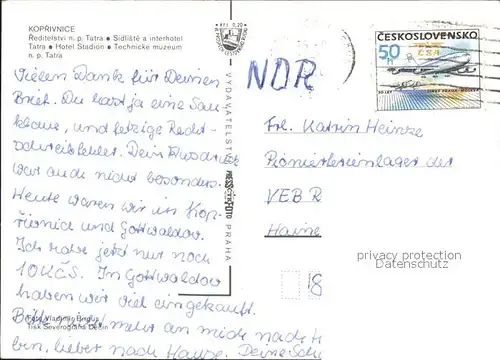 KOPŘIVNICE
Ředitelství n. p. Tatra ● Sídliště a interhotel
Tatra ● Hotel Stadion ● Technické muzeum
n. p. Tatra
Vielen Dank für Deinen
Brief. Du hast ja eine Sau-
klaue, und fetzige Recht-
schreibfehler. Dein Ausdruck
war auch nicht besonders.
Heute waren wir in Kop-
řivnice und Gottwaldov.
Ich habe jetzt nur noch
10 KČS. In Gottwaldov
haben wir viel eingekauft.
mehr an mich nach
bin, lieber nach Hause. Deine
Foto Vladimír
Tisk Severografia Děčín
VYDAVATELSTVÍ
PRESSFOTO
PRAHA
NDR
ČESKOSLOVENSKO
50
ČSA
Frl. Katrin Heinze
Pionierferienlager des
VEB R
Haine
18
privacy protection
Datenschutz